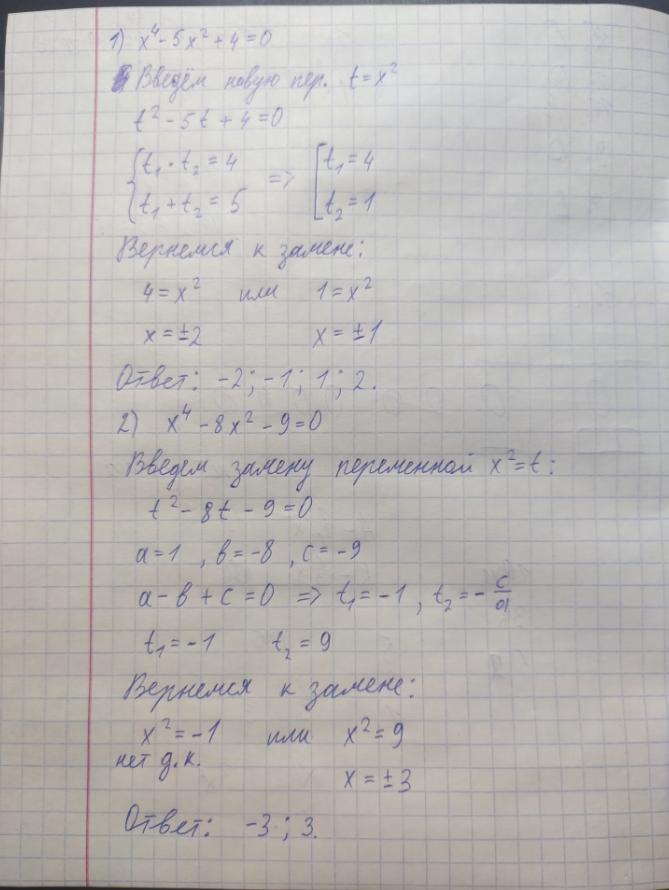 1) x⁴ - 5x² + 4 = 0
Введём новую пер. t = x²
t² - 5t + 4 = 0
{ t₁ · t₂ = 4 => [ t₁ = 4
t₁ + t₂ = 5 t₂ = 1
Вернемся к замене:
4 = x² или 1 = x²
x = ±2 x = ±1
Ответ: -2; -1; 1; 2.
2) x⁴ - 8x² - 9 = 0
Введем замену переменной x² = t:
t² - 8t - 9 = 0
a = 1, в = -8, c = -9
a - в + c = 0 => t₁ = -1, t₂ = - c/a
t₁ = -1 t₂ = 9
Вернемся к замене:
x² = -1 или x² = 9
нет д.к.
x = ±3
Ответ: -3; 3.